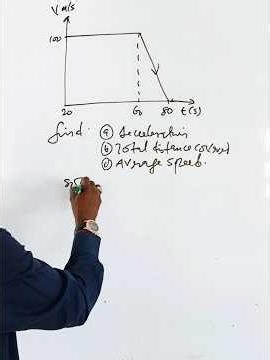 V m/s
100
20 60 80 t(s)
find: (a) Deceleration
(b) Total distance covered
(c) Average speed.